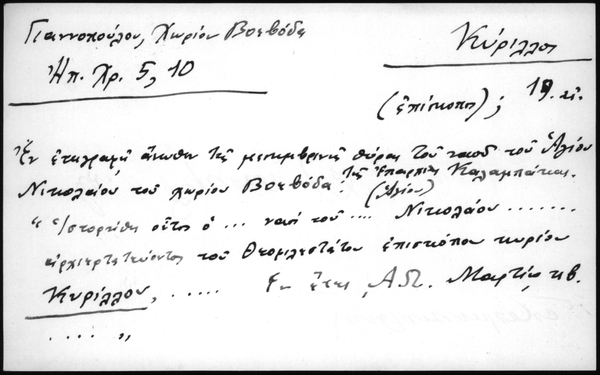 Γιαννοπούλου, Χωρίον Βοεβόδα
Ἠπ. Χρ. 5, 10
Κύριλλος
(ἐπίσκοπος); 19. αἰ.
Ἐν ἐπιγραφῇ ἄνωθεν τῆς μεσημβρινῆς θύρας τοῦ ναοῦ τοῦ Ἁγίου
Νικολάου τοῦ χωρίου Βοεβόδα: τῆς Ἐπαρχίας Καλαμπάκας.
" Ἱστορήθη οὗτος ὁ ... ναός τοῦ (Ἁγίου) .... Νικολάου .......
ἀρχιερατεύοντος τοῦ Θεοφιλεστάτου ἐπισκόπου κυρίου
Κυρίλλου, ..... Ἐν ἔτει, Μαρτίῳ κβ.
..... "